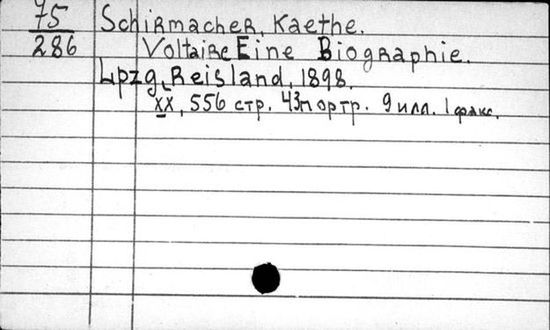 75
286
Schirmacher, Kaethe.
Voltaire Eine Biographie.
Lpzg, Reisland, 1898.
XX, 556 стр. 43 портр. 9 илл. 1 факс.